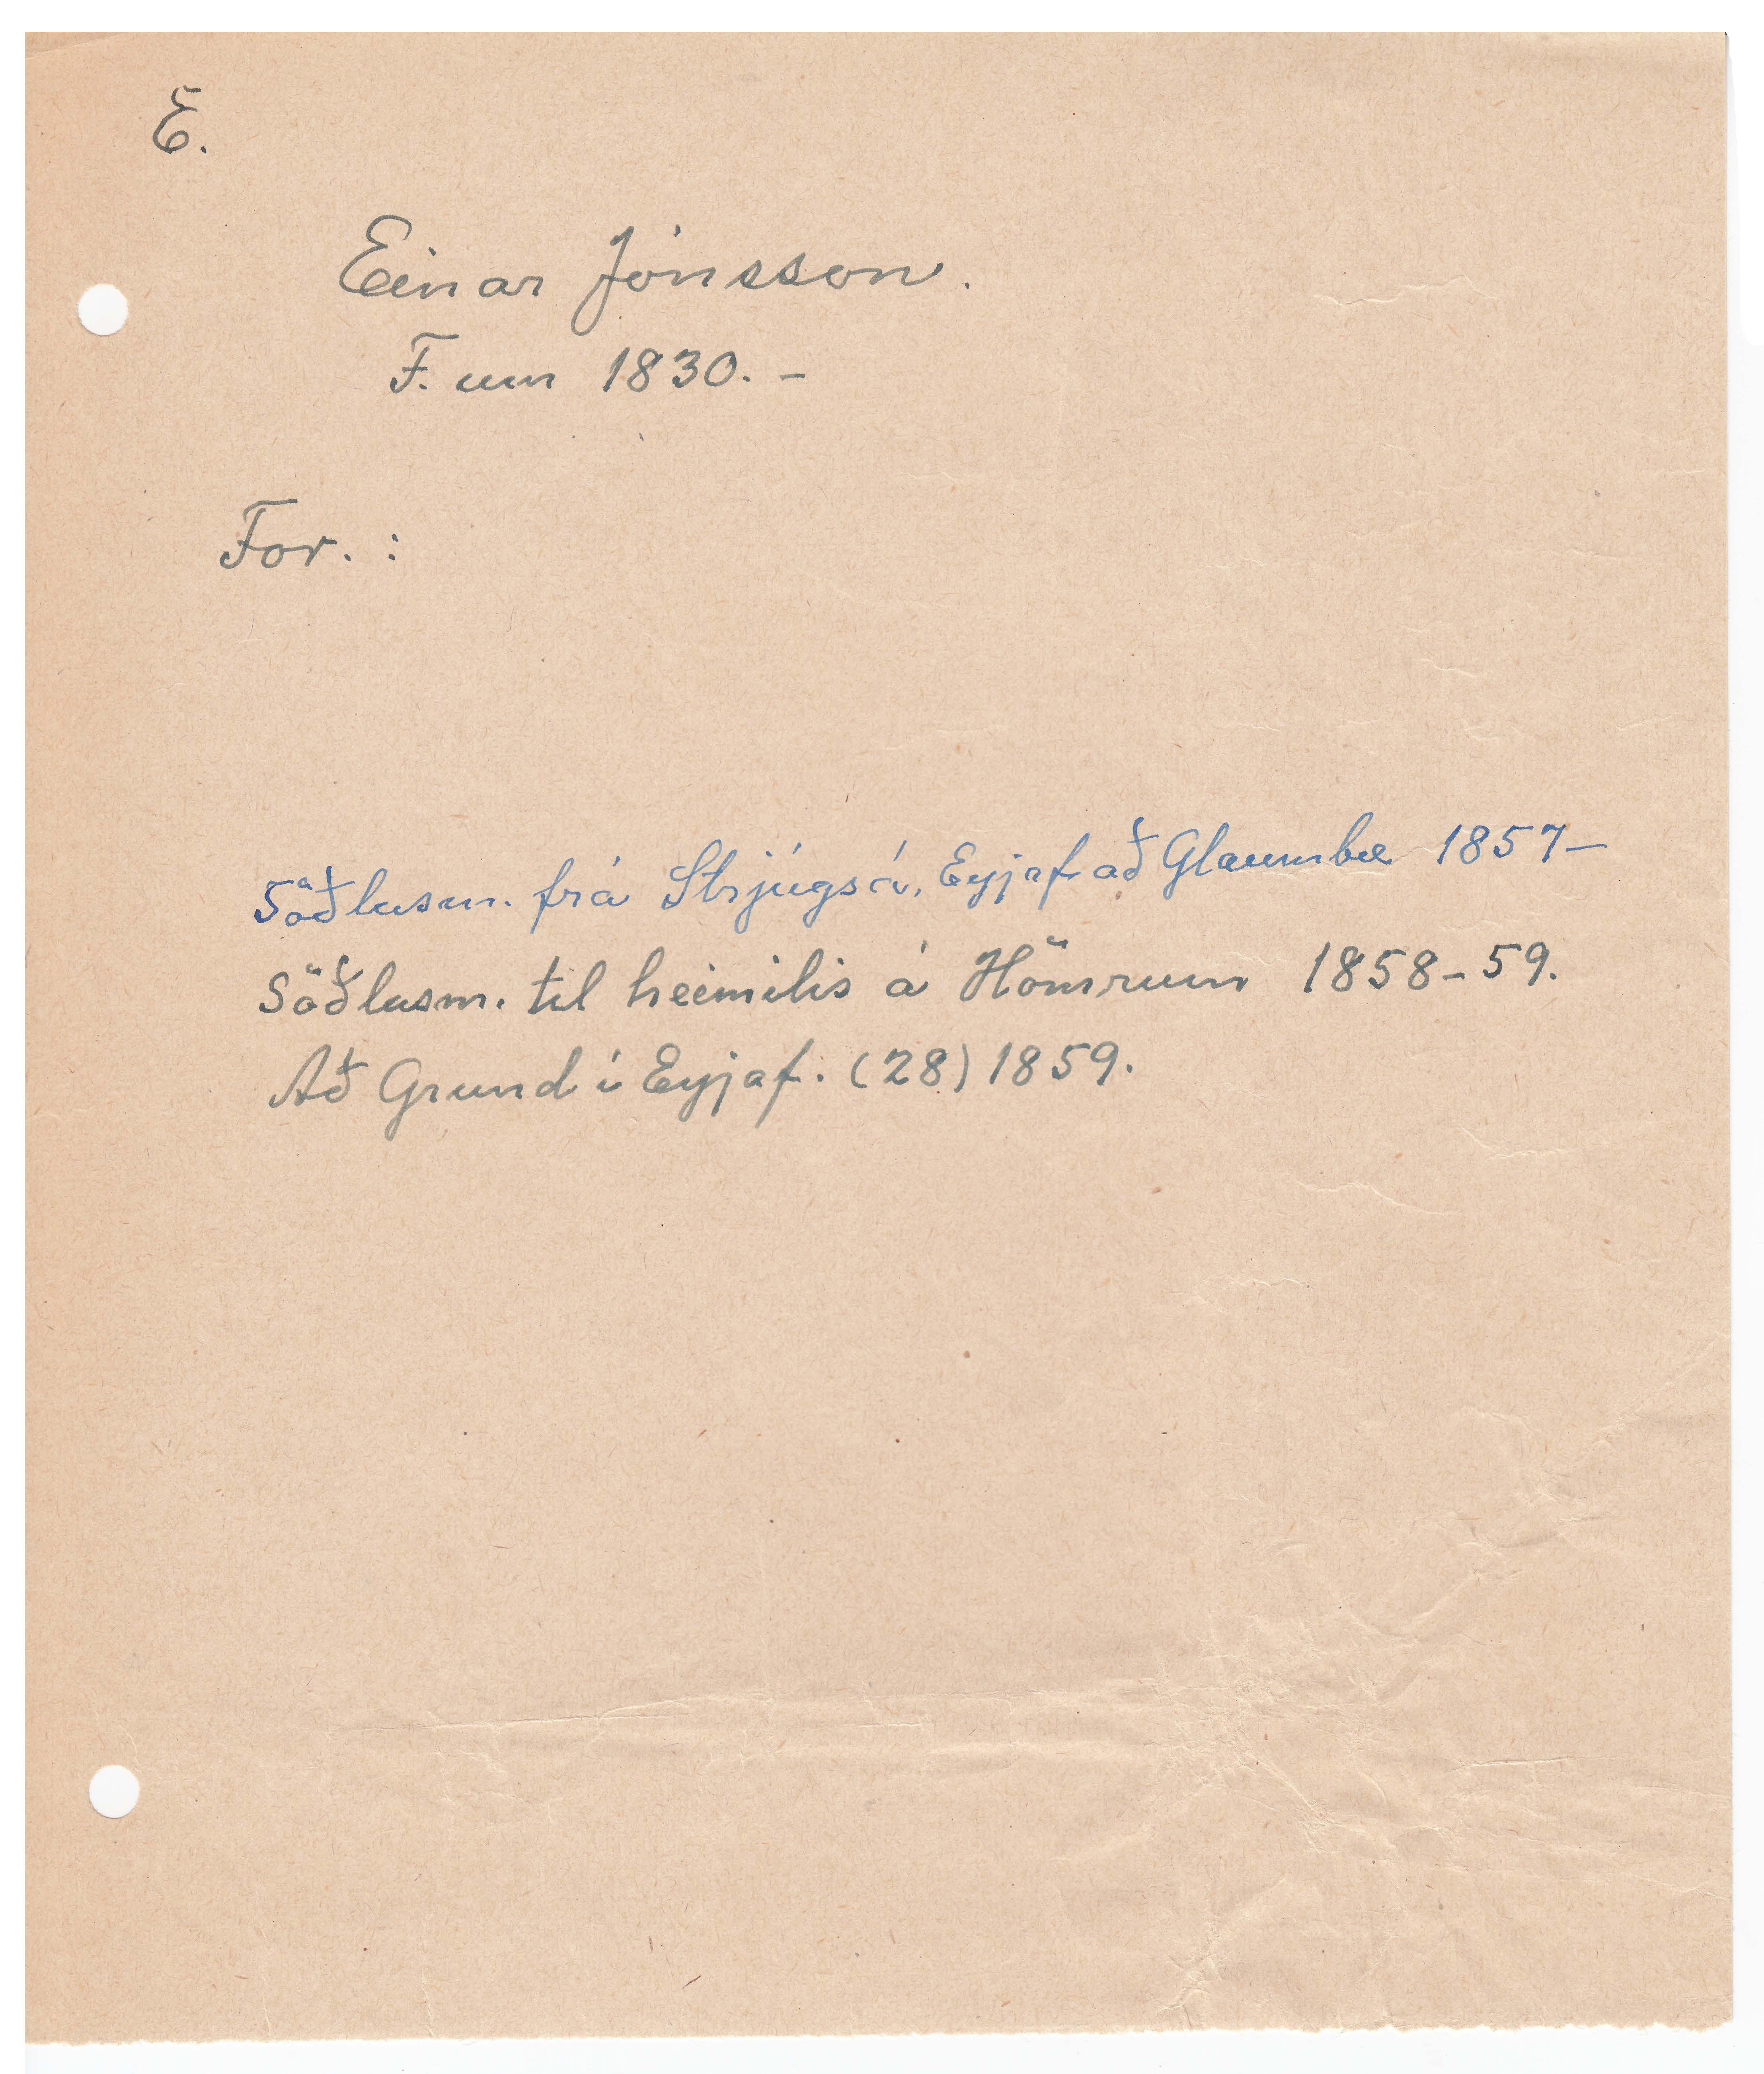 E.
Einar Jónsson.
F. um 1830. -
For. :
Söðlasm. frá Strjúgsá, Eyjaf. að Glaumbæ 1857-
Söðlasm. til heimilis á Hömrum 1858-59.
Að Grund í Eyjaf. (28) 1859.